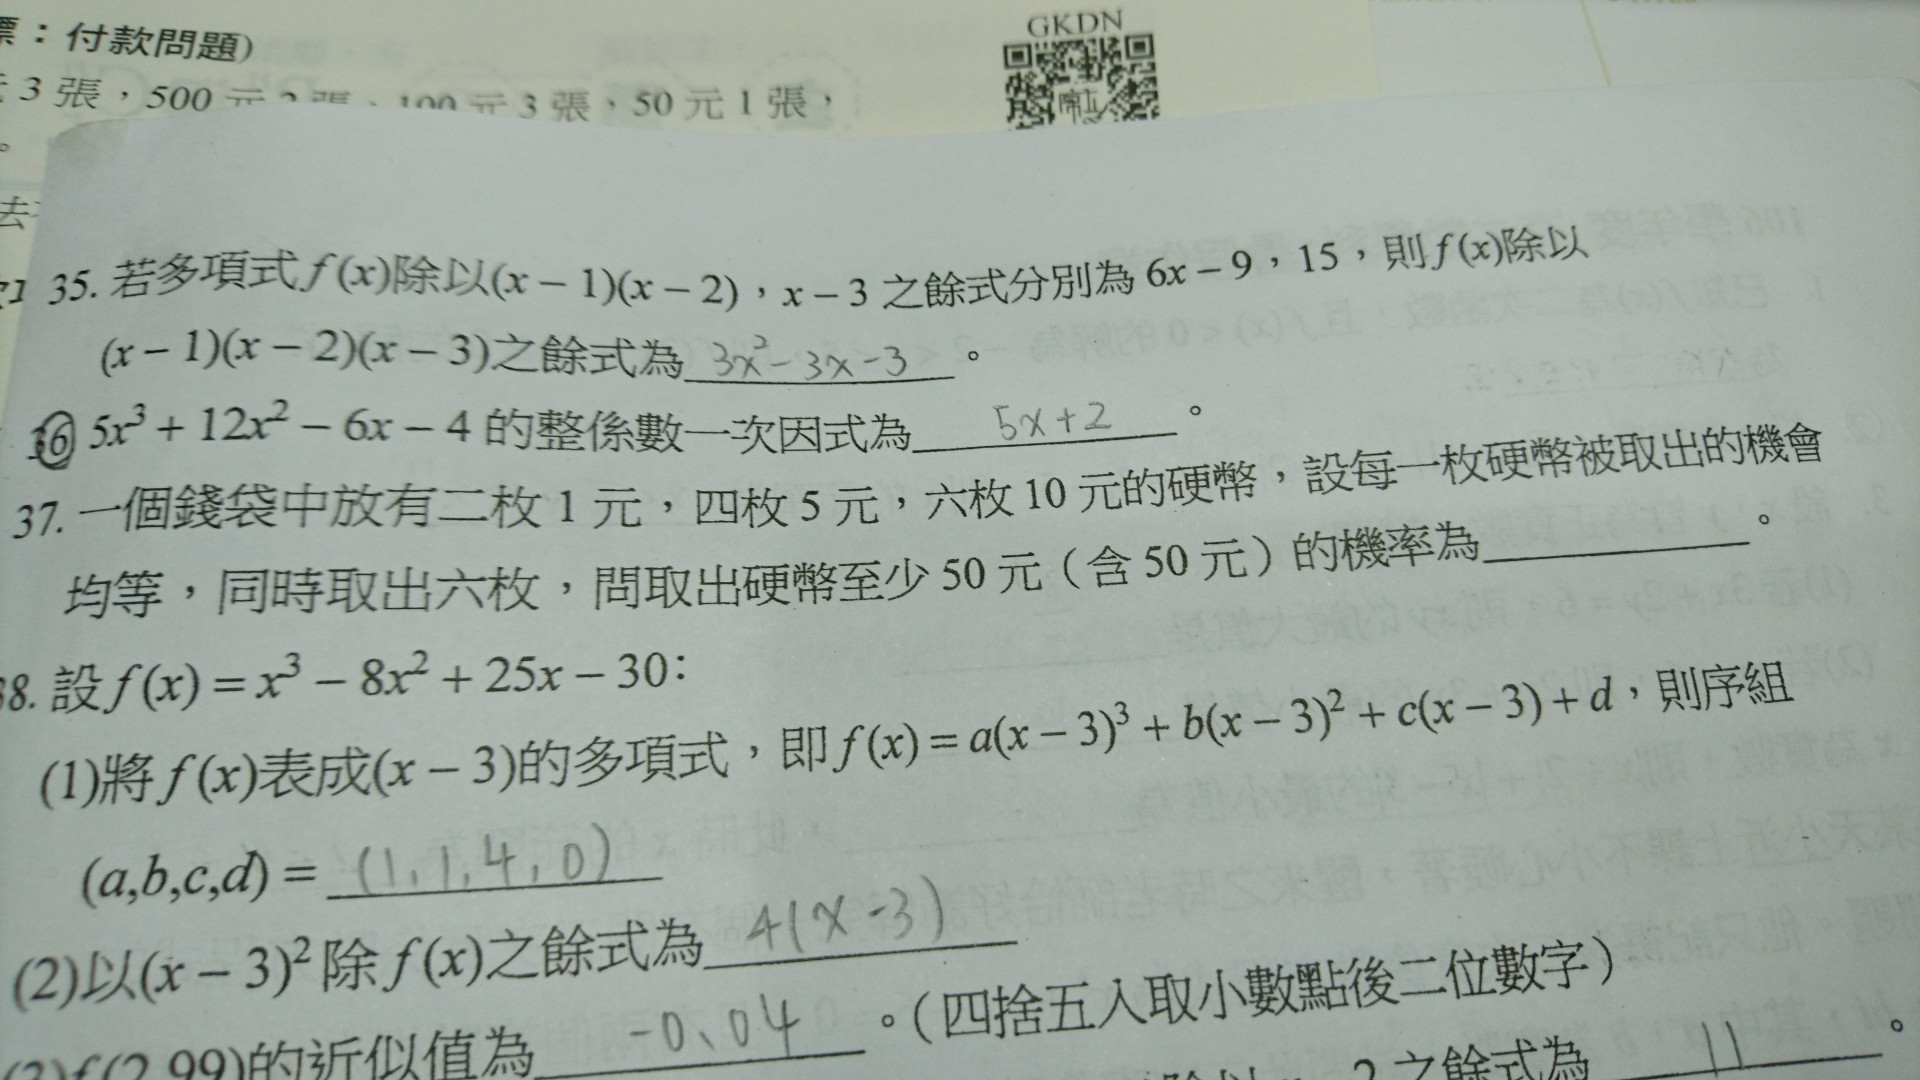 ：付款問題)
GKDN
3 張，500 元 2 張、100 元 3 張，50 元 1 張，
。
去
35. 若多項式 f(x)除以(x − 1)(x − 2)，x − 3 之餘式分別為 6x − 9，15，則 f(x)除以
(x − 1)(x − 2)(x − 3)之餘式為 3x² − 3x − 3 。
36 5x³ + 12x² − 6x − 4 的整係數一次因式為 5x+2 。
37. 一個錢袋中放有二枚 1 元，四枚 5 元，六枚 10 元的硬幣，設每一枚硬幣被取出的機會
均等，同時取出六枚，問取出硬幣至少 50 元（含 50 元）的機率為 。
38. 設 f(x) = x³ − 8x² + 25x − 30：
(1)將 f(x)表成(x − 3)的多項式，即 f(x) = a(x − 3)³ + b(x − 3)² + c(x − 3) + d，則序組
(a,b,c,d) = (1,1,4,0)
(2)以(x − 3)² 除 f(x)之餘式為 4(x-3)
(3)f(2.99)的近似值為 -0、04 。（四捨五入取小數點後二位數字）
2 之餘式為 11 。